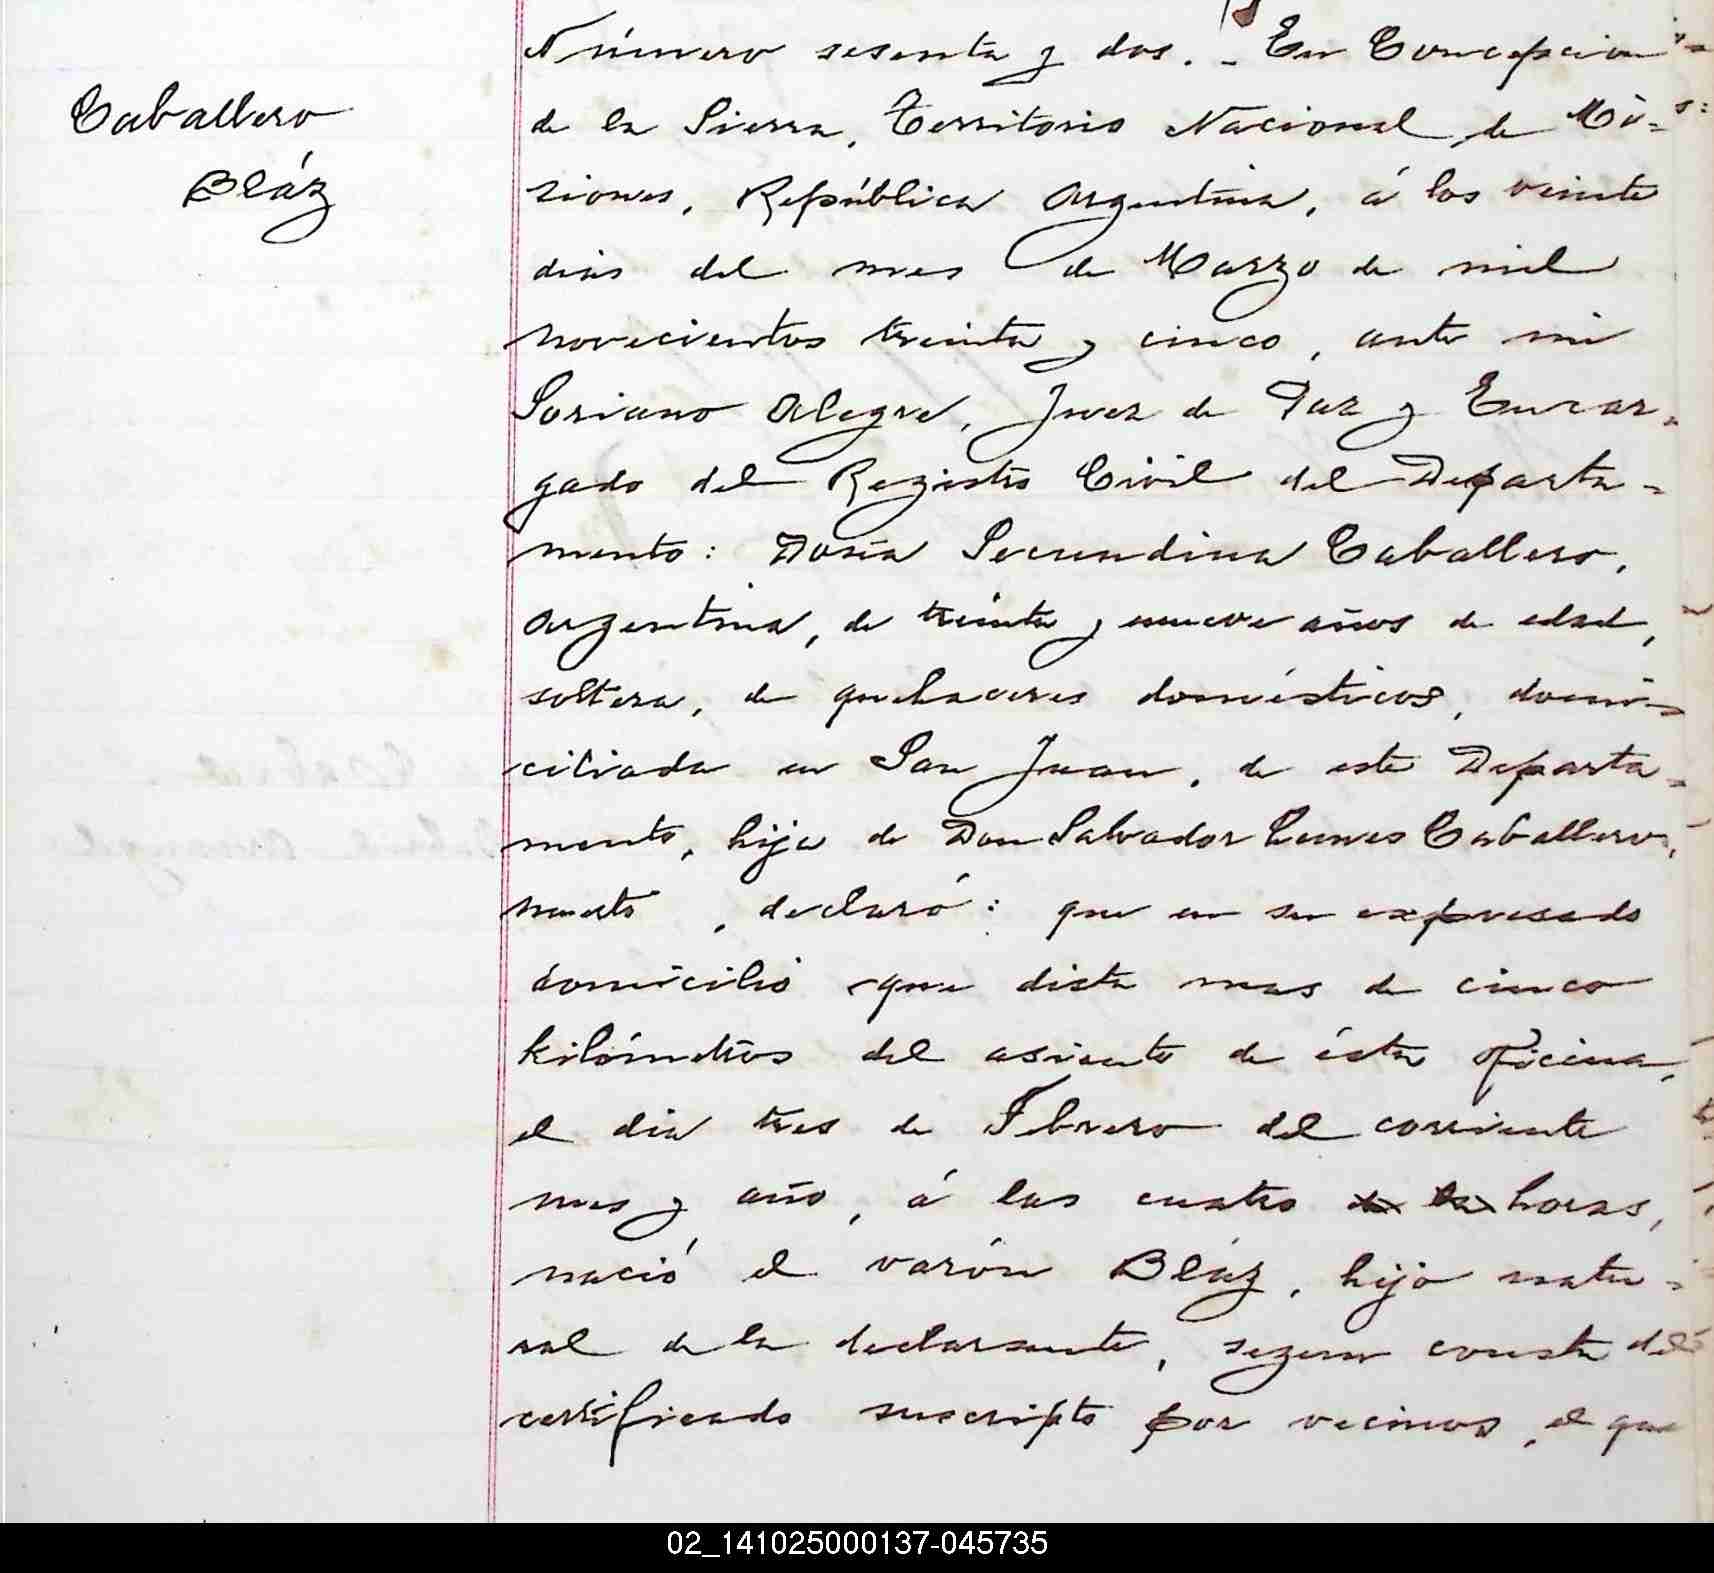 Caballero
Bláz
Número sesenta y dos. - En Concepcion
de la Sierra, Territorio Nacional de Mi-
siones, República Argentina, á los veinte
dias del mes de Marzo de mil
novecientos treinta y cinco, ante mi
Soriano Alegre, Juez de Paz y Encar-
gado del Registro Civil del Departa-
mento: Doña Secundina Caballero,
argentina, de treinta y nueve años de edad,
soltera, de quehaceres domésticos, domi-
ciliada en San Juan, de este Departa-
mento, hija de Don Salvador Caballero,
muerto, declaró: que en su expresado
domicilio que dista mas de cinco
kilómetros del asiento de ésta oficina,
el dia tres de Febrero del corriente
mes y año, á las cuatro de la horas,
nació el varón Bláz, hijo natu-
ral de la declarante, segun consta del
certificado suscripto por vecinos, el que
02_141025000137-045735